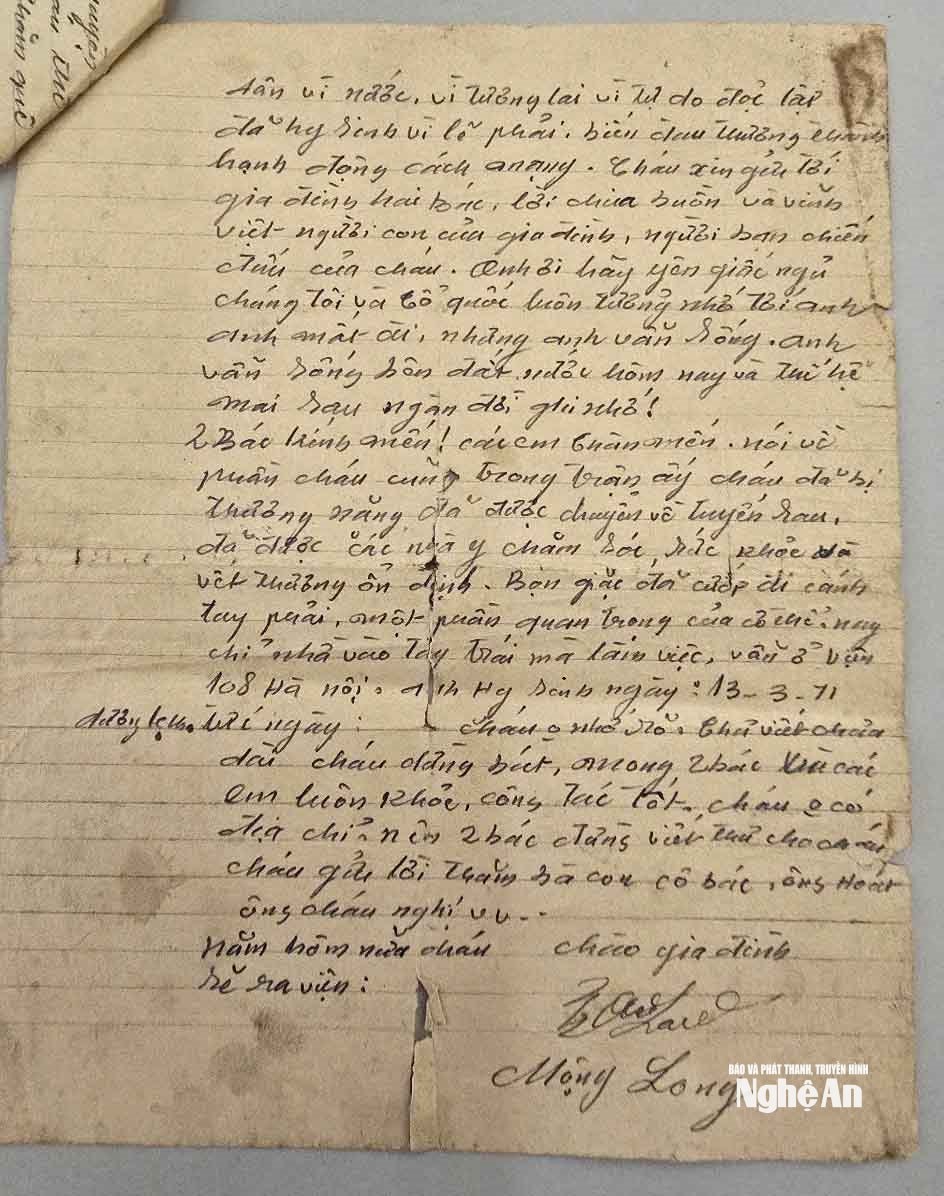 dân vì nước, vì tương lai vì tự do độc lập
đã hy sinh vì lẽ phải. biến đau thương thành
hạnh động cách mạng. Cháu xin gửi tới
gia đình hai bác, lời chia buồn và vĩnh
việt người con của gia đình, người bạn chiến
đấu của cháu. Anh ơi hãy yên giấc ngủ
chúng tôi và tổ quốc luôn tưởng nhớ tới anh
anh mất đi, nhưng anh vẫn sống. anh
vẫn sống bên đất nước hôm nay và thế hệ
mai sau ngàn đời ghi nhớ!
2 Bác kính mến! các em thân mến. nói về
phần cháu cũng trong trận ấy cháu đã bị
thương nặng đã được chuyển về tuyến sau,
đã được các y chăm sóc, sức khỏe và
vết thương ổn định. Bọn giặc đã cướp đi cánh
tay phải, một phần quan trọng của cơ thể. nay
chỉ nhờ vào tay trái mà làm việc, vẫn ở viện
108 Hà nội. anh Hy sinh ngày: 13-3-71
dương lịch. ngày: cháu o nhớ rõ. Thư viết chưa
dài cháu dừng bút, mong 2 bác và các
em luôn khỏe, công tác tốt. cháu o có
địa chỉ nên 2 bác đừng viết thư cho cháu
cháu gửi lời thăm bà con cô bác, ông Hoát
ông cháu nghị vv...
năm hôm nữa cháu chào gia đình
sẽ ra viện:
Mộng Long
BÁO VÀ PHÁT THANH, TRUYỀN HÌNH
Nghệ An